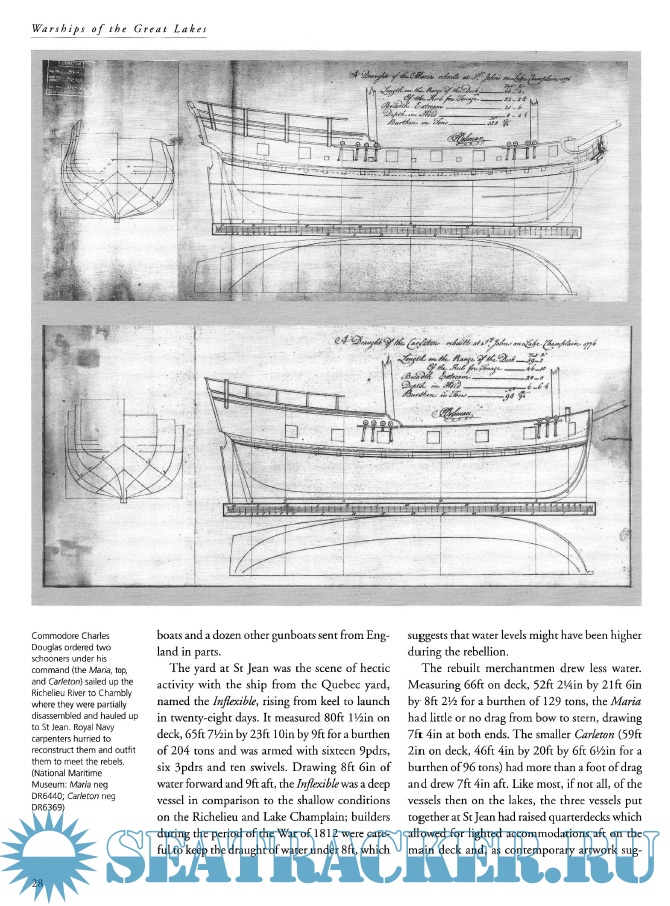 Warships of the Great Lakes
A Draught of the Maria rebuilt at St. Johns on Lake Champlain 1776
Length on the Range of the Deck
Of the Keel for Tonage
Breadth Extream
Depth in Hold
Burthen in Tons
A Draught of the Carleton rebuilt at St. Johns on Lake Champlain 1776
Length on the Range of the Deck
Of the Keel for Tonage
Breadth Extream
Depth in Hold
Burthen in Tons
Commodore Charles
Douglas ordered two
schooners under his
command (the Maria, top,
and Carleton) sailed up the
Richelieu River to Chambly
where they were partially
disassembled and hauled up
to St Jean. Royal Navy
carpenters hurried to
reconstruct them and outfit
them to meet the rebels.
(National Maritime
Museum: Maria neg
DR6440; Carleton neg
DR6369)
boats and a dozen other gunboats sent from Eng-
land in parts.
The yard at St Jean was the scene of hectic
activity with the ship from the Quebec yard,
named the Inflexible, rising from keel to launch
in twenty-eight days. It measured 80ft 1½in on
deck, 65ft 7½in by 23ft 10in by 9ft for a burthen
of 204 tons and was armed with sixteen 9pdrs,
six 3pdrs and ten swivels. Drawing 8ft 6in of
water forward and 9ft aft, the Inflexible was a deep
vessel in comparison to the shallow conditions
on the Richelieu and Lake Champlain; builders
during the period of the War of 1812 were care-
ful to keep the draught of water under 8ft, which
suggests that water levels might have been higher
during the rebellion.
The rebuilt merchantmen drew less water.
Measuring 66ft on deck, 52ft 2¼in by 21ft 6in
by 8ft 2½ for a burthen of 129 tons, the Maria
had little or no drag from bow to stern, drawing
7ft 4in at both ends. The smaller Carleton (59ft
2in on deck, 46ft 4in by 20ft by 6ft 6½in for a
burthen of 96 tons) had more than a foot of drag
and drew 7ft 4in aft. Like most, if not all, of the
vessels then on the lakes, the three vessels put
together at St Jean had raised quarterdecks which
allowed for lighted accommodations aft on the
main deck and, as contemporary artwork sug-
28
SEATRACKER.RU